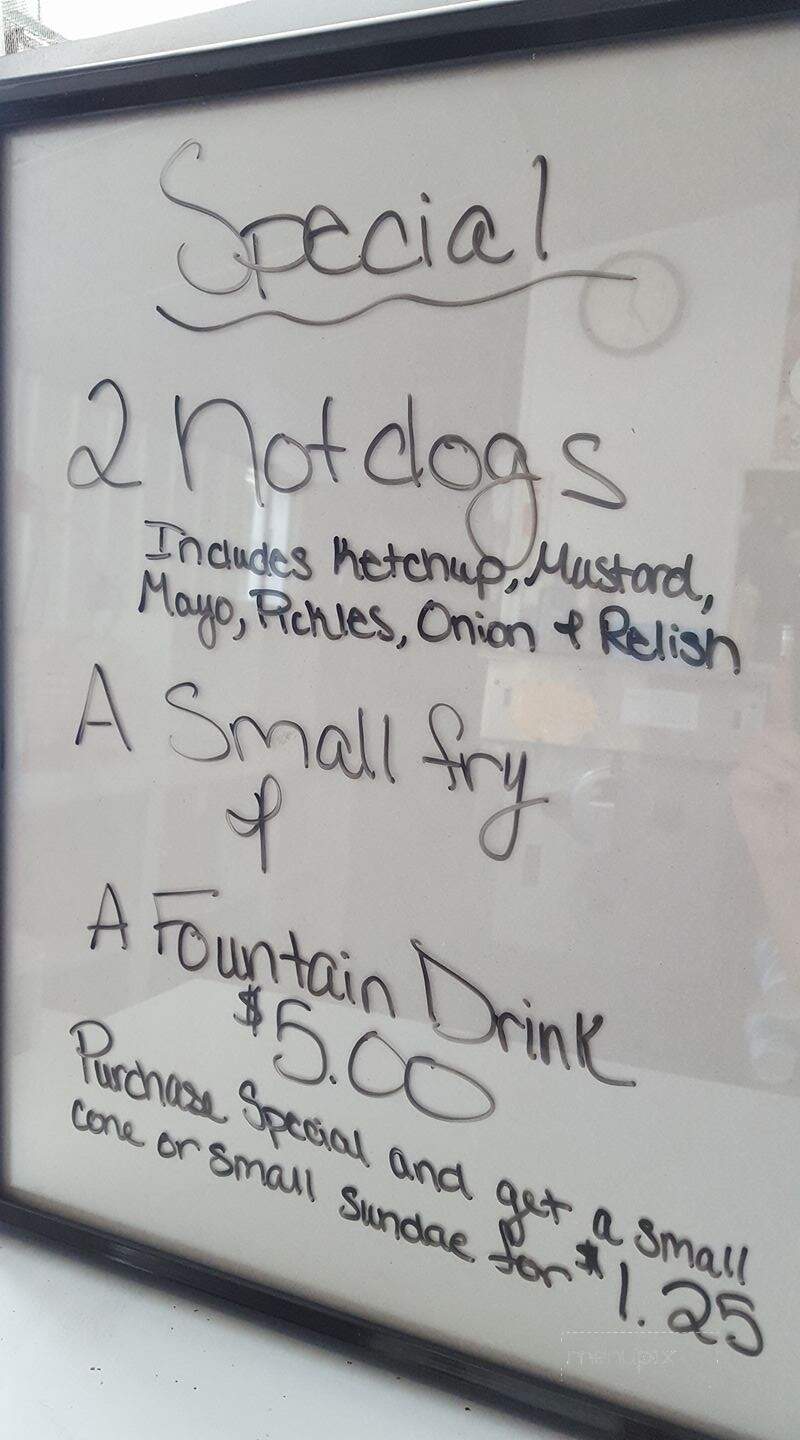 Special
2 Hotdogs
Includes Ketchup, Mustard,
Mayo, Pickles, Onion & Relish
A Small fry
&
A Fountain Drink
$5.00
Purchase Special and get a small
cone or small sundae for $1.25
menupix